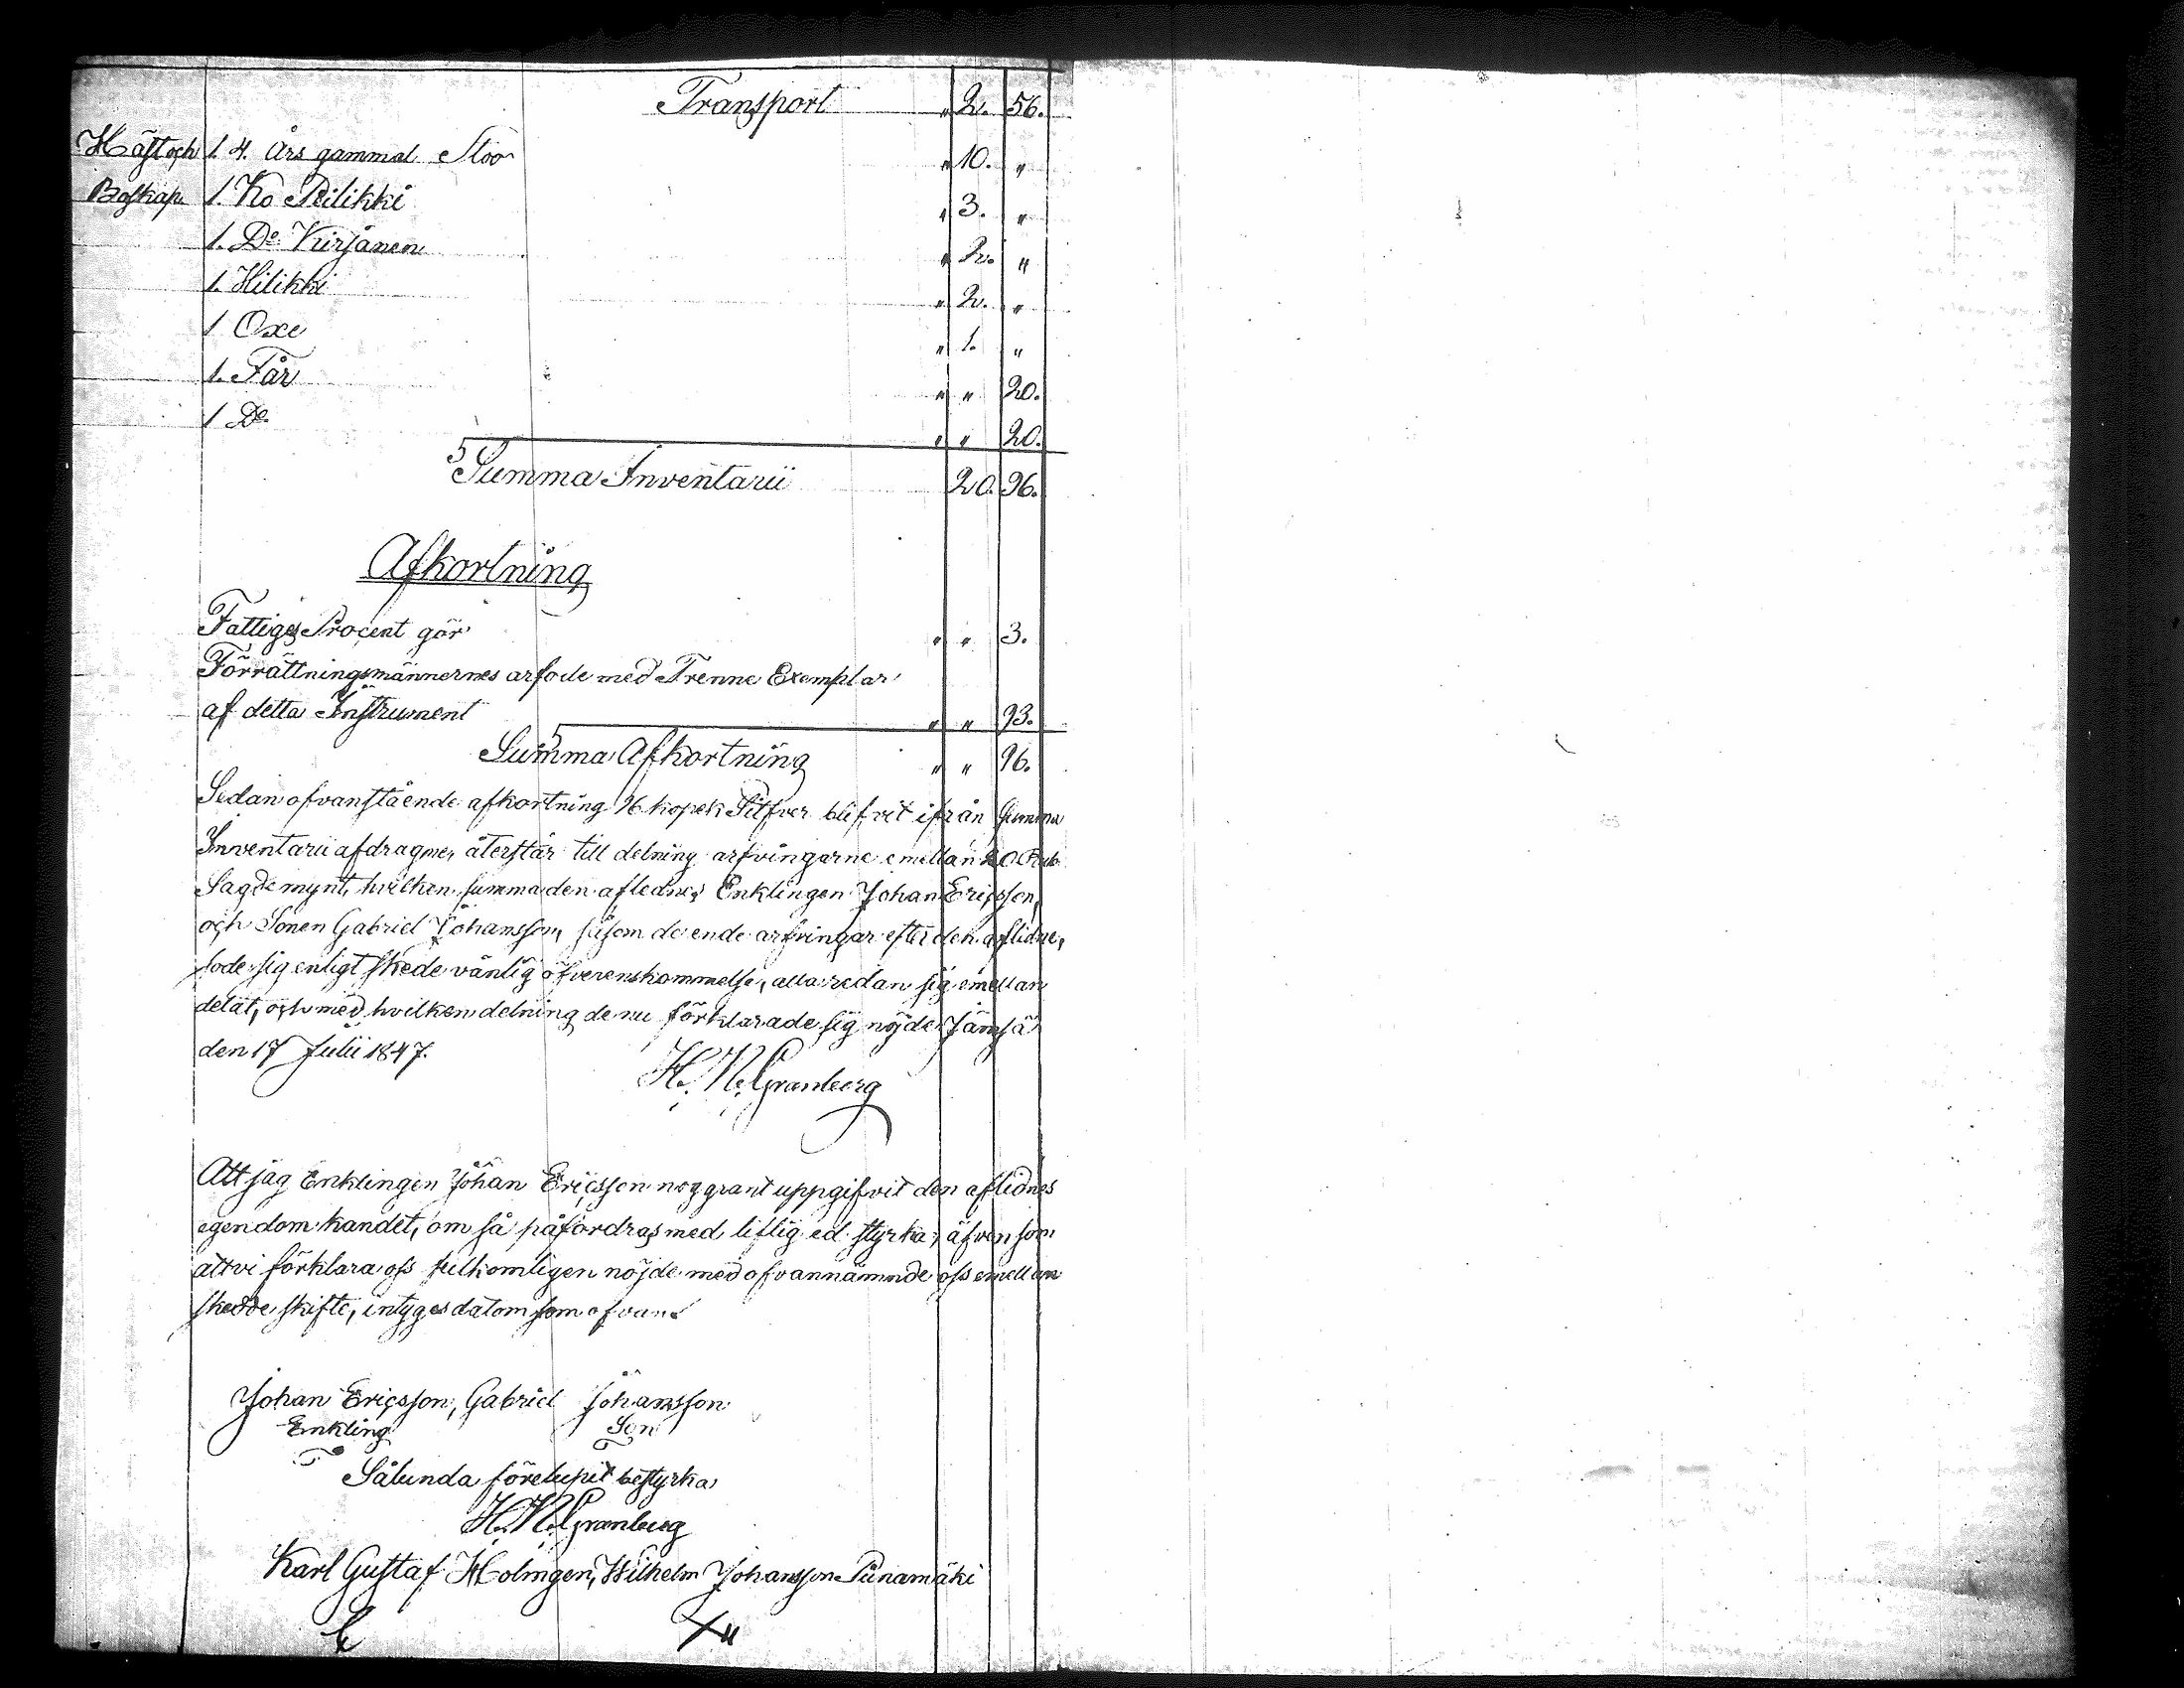 Transport " 2. 56.
Häst och 1. 4. Års gammal Stoo " 10. "
Boskap 1. Ko Piilikki " 3. "
1. Do Kirjänen " 2. "
1. Hilikki " 2. "
1 Oxe " 1. "
1. Får " " 20.
1 Do " " 20.
Summa Inventarii 20. 96.
Afkortning
Fattiges Procent gör " " 3.
Förrättningsmännernes arfode med Trenne Exemplar
af detta Instrument " " 93.
Summa Afkortning " " 96.
Sedan ofvanstående afkortning 96 kopek Silfver blifvit ifrån Summa
Inventarii afdragne, återstår till delning arfvingarne emellan 20 Rub
Sagde mynt, hvilken summa den aflednes Enklingen Johan Ericsson,
och Sonen Gabriel Johansson, såsom de ende arfvingar efter den aflidne,
sig enligt skede vänlig öfverenskommelse, alla redan sig emellan
delat, och med hvilken delning de nu förklarade sig nöjde Jämsä
den 17 Julii 1847.
H. N. Granberg
Att jag Enklingen Johan Ericsson noggrant uppgifvit den aflidnes
egendom handet, om så påfordras med liflig ed styrka, äfven som
att vi förklara oss fullkomligen nöjde med ofvannämnde oss emellan
skedde skifte, intyges datom som ofvan.
Johan Ericsson, Gabriel Johansson
Enkling Son
Sålunda förelupit bestyrka
H. N. Granberg
Karl Gustaf Holmgen, Wilhelm Johansson Punamäki